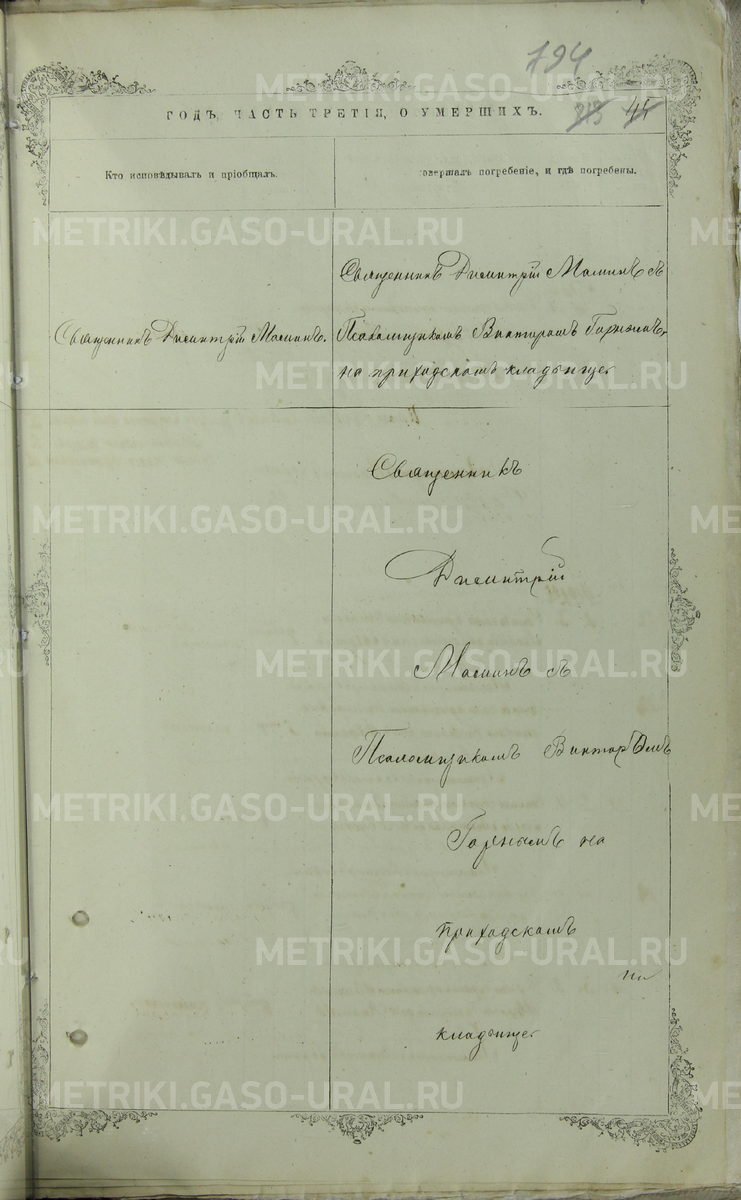 194
ГОДЪ, ЧАСТЬ ТРЕТІЯ, О УМЕРШИХЪ.
Кто исповѣдывалъ и пріобщалъ.
совершалъ погребеніе, и гдѣ погребены.
Священникъ Димитрій Маминъ съ
Священникъ Димитрій Маминъ.
Псаломщикомъ Викторомъ
на приходскомъ кладбище
Священникъ
Димитрій
Маминъ съ
Псаломщикомъ Викторомъ
на
приходскомъ
кладбище
METRIKI.GASO-URAL.RU